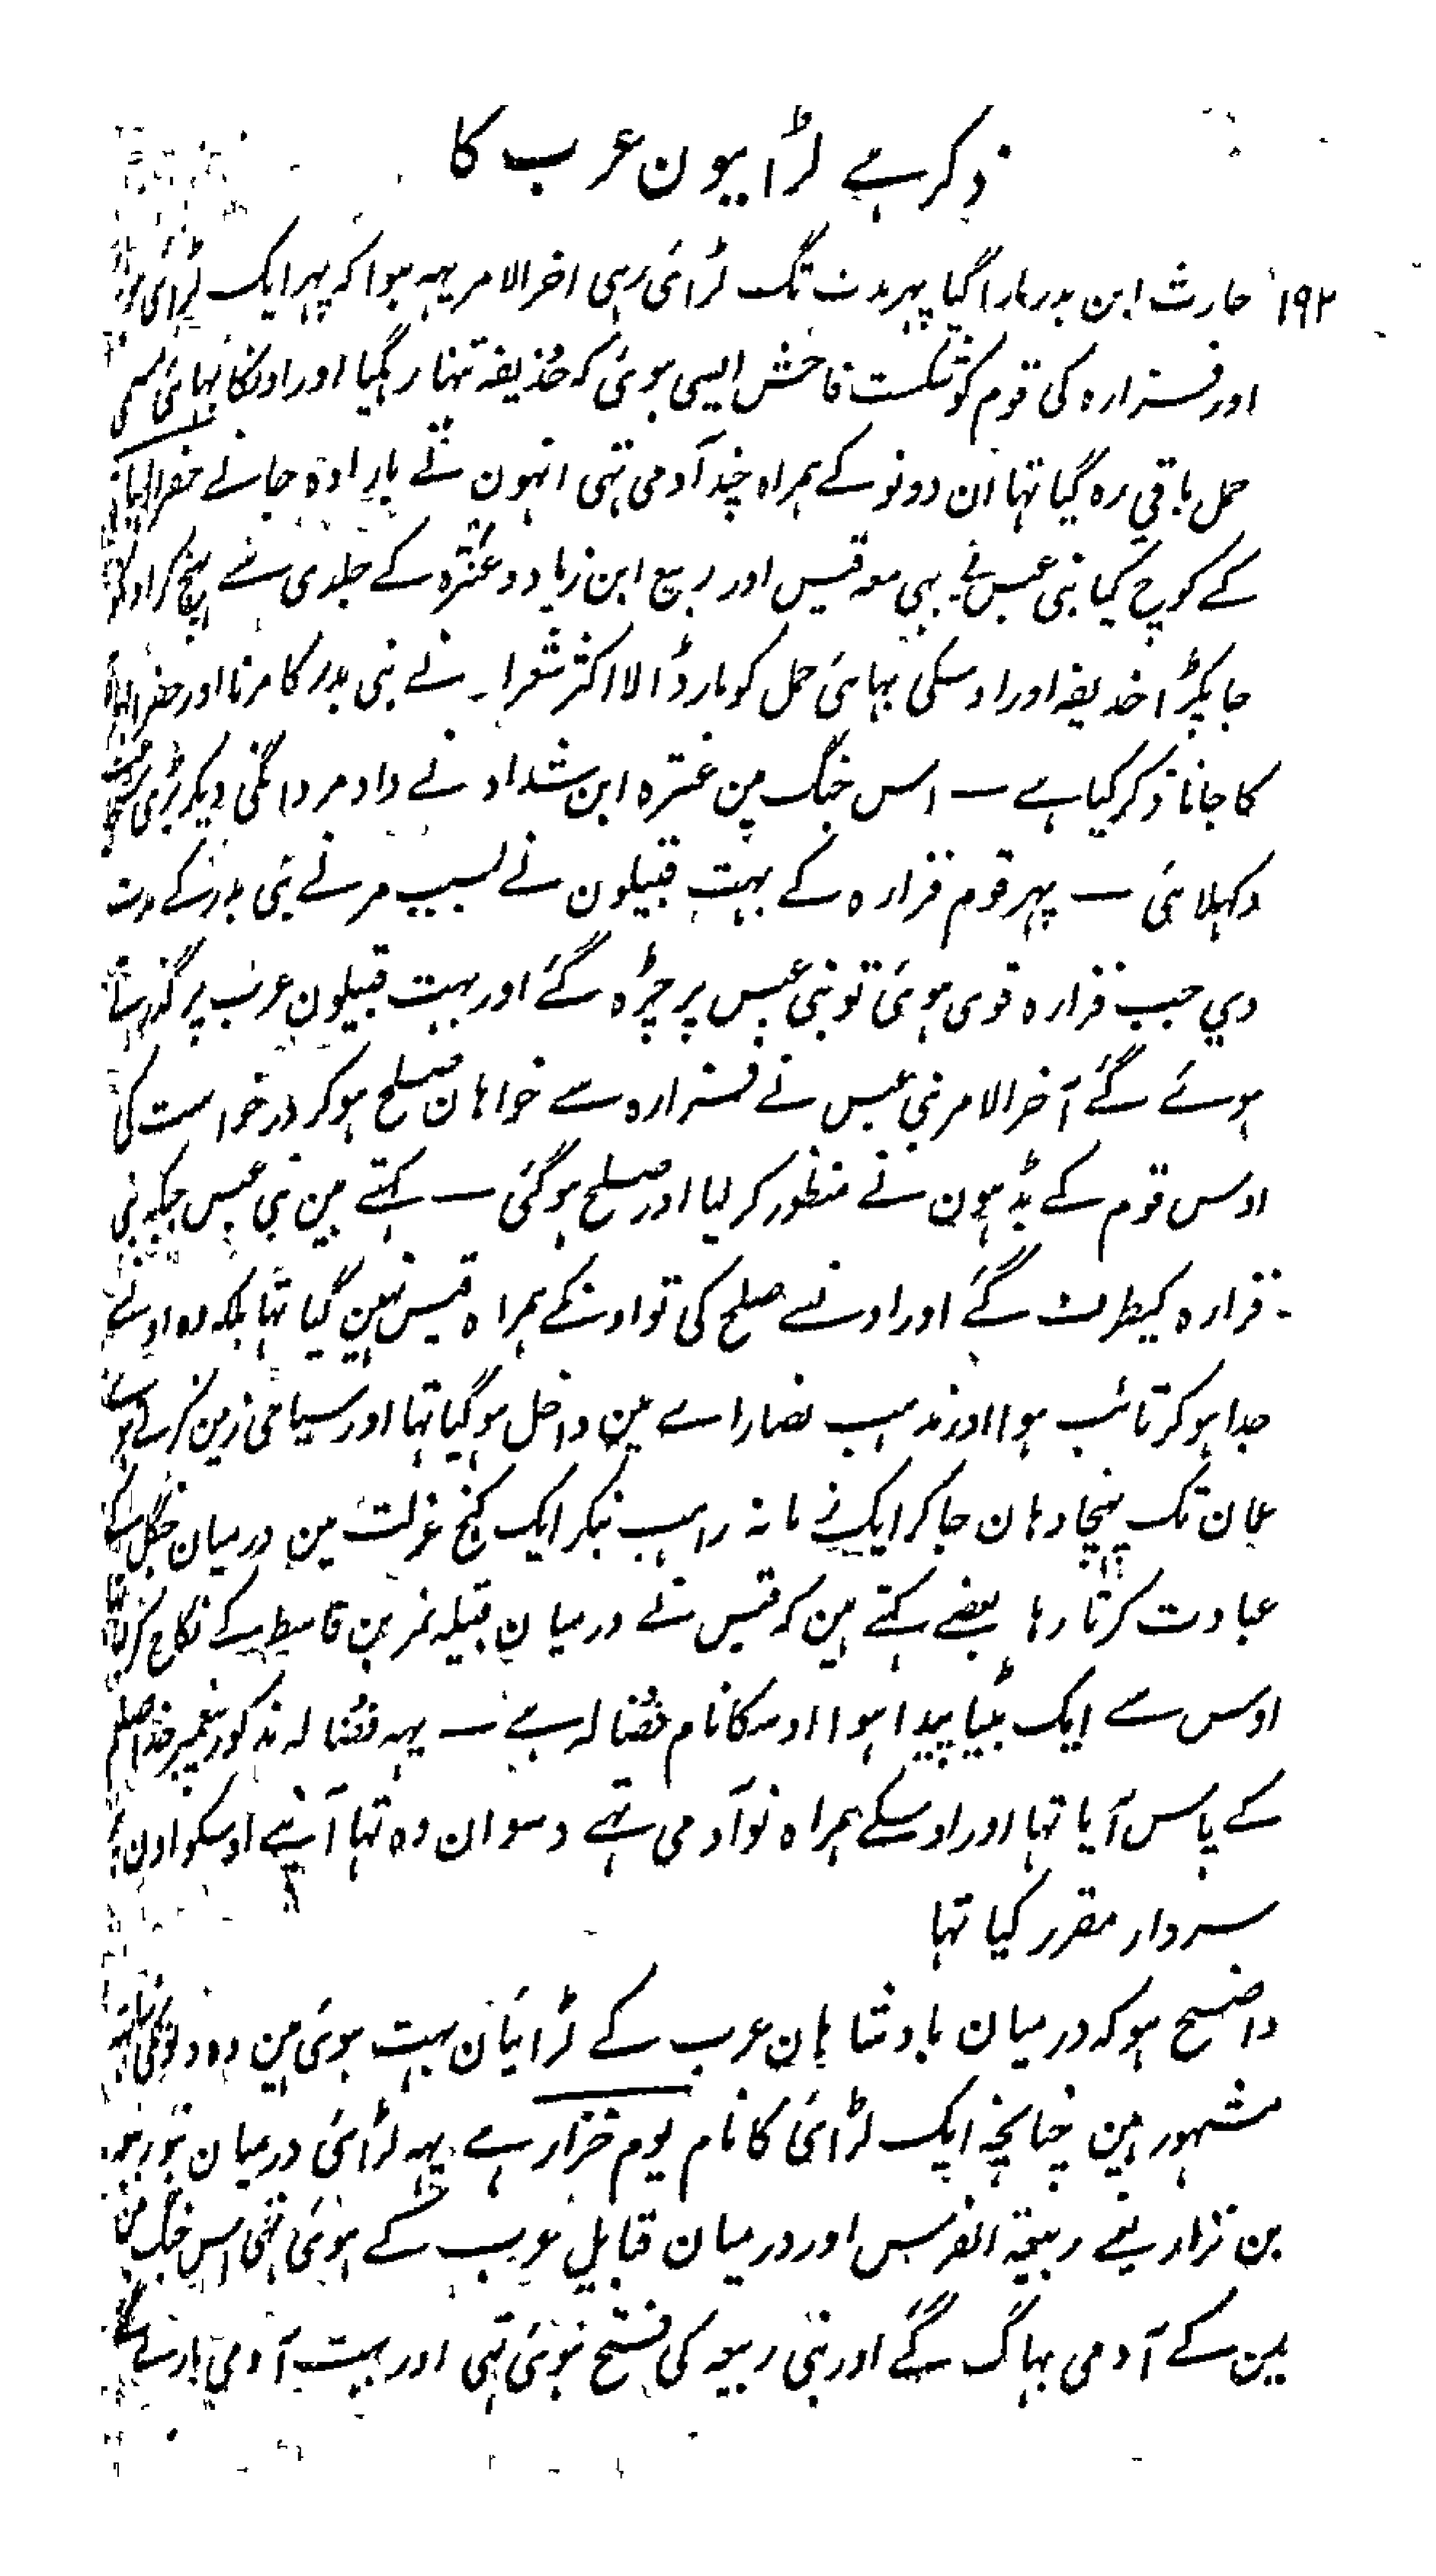 ذکر ہے لڑائیون عرب کا
۱۹۲ حارث ابن بدر مارا گیا پہر مدت تک لڑائی رہی اخر الامر یہہ ہوا کہ پہر ایک لڑائی
اور فزارہ کی قوم کو شکست فاحش ایسی ہوئی کہ حذیفہ تنہا رہگیا اور اوسکا بہائی مسمی
حمل باقی رہ گیا تہا ان دونو کے ہمراہ چند آدمی تہی انہون نے بارادہ جانے جفر الہبا
کے کوچ کیا بنی عبس نے بہی معہ قیس اور ربیع ابن زیاد و عنترہ کے جلدی سے پہنچ کر
جا پکڑا حذیفہ اور اوسکی بہائی حمل کو مار ڈالا اکثر شعرا نے بنی بدر کا مرنا اور جفر الہبا
کا جانا ذکر کیا ہے ـ اس جنگ مین عنترہ ابن شداد نے داد مردانگی دیکر بڑی
دکہلائی ـ پہر قوم فزارہ کے بہت قبیلون نے بسبب مرنے بنی بدر کے مدد
دی جب فزارہ قوی ہوئی تو بنی عبس پر چڑہ گئے اور بہت قبیلون عرب پر گذر
ہوئے گئے آخر الامر بنی عبس نے فزارہ سے خواہان صلح ہوکر درخواست کی
اوس قوم کے بڈہون نے منظور کر لیا اور صلح ہوگئی ـ کہتے ہین بنی عبس جبکہ بنی
فزارہ کیطرف گئے اور اونسے صلح کی تو اونکے ہمراہ قیس نہین گیا تہا بلکہ وہ اونسے
جدا ہوکر تائب ہوا اور مذہب نصارائے مین داخل ہوگیا تہا اور سیاحی زمین کرتے
عمان تک پہنچا وہان جاکر ایک زمانہ راہب بنکر ایک کنج عزلت مین درمیان جنگل کے
عبادت کرتا رہا بعضے کہتے ہین کہ قیس نے درمیان قبیلہ نمر بن قاسط کے نکاح کر لیا
اوس سے ایک بیٹا پیدا ہوا اوسکا نام فضالہ ہے ـ یہہ فضالہ مذکور پیغمبر خدا صلعم
کے پاس آیا تہا اور اوسکے ہمراہ نو آدمی تہے دسوان وہ تہا آپنے اوسکو اون
سردار مقرر کیا تہا
واضح ہو کہ درمیان بادشاہان عرب کے لڑائیان بہت ہوئی ہین وہ
مشہور ہین چنانچہ ایک لڑائی کا نام یوم خزار ہے یہہ لڑائی درمیان
بن نزار یعنے ربیعۃ الفرس اور درمیان قبایل عرب کے ہوئی تہی اس جنگ مین
یمن کے آدمی بہاگ گئے اور بنی ربیعہ کی فتح ہوئی تہی اور بہت آدمی مارے گئے